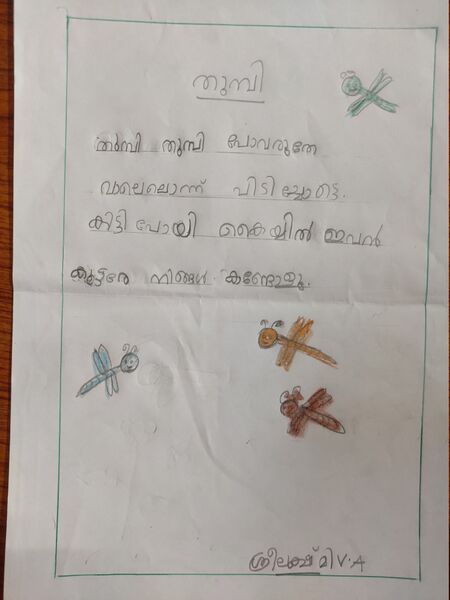 തുമ്പി
തുമ്പി തുമ്പി പോവരുതേ
വാലെലൊന്ന് പിടിച്ചോട്ടെ.
കിട്ടി പോയി കൈയ്യിൽ ഇവൻ
കൂട്ടരേ നിങ്ങൾ കണ്ടോളൂ.
ശ്രീലക്ഷ്മി V.A